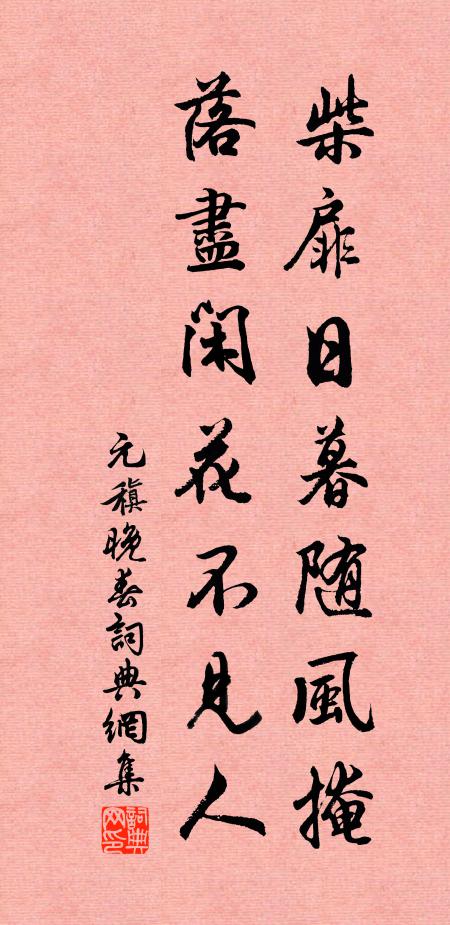 柴扉日暮随風掩
落盡閑花不見人
元稹晚春詞典網集
詞典网印